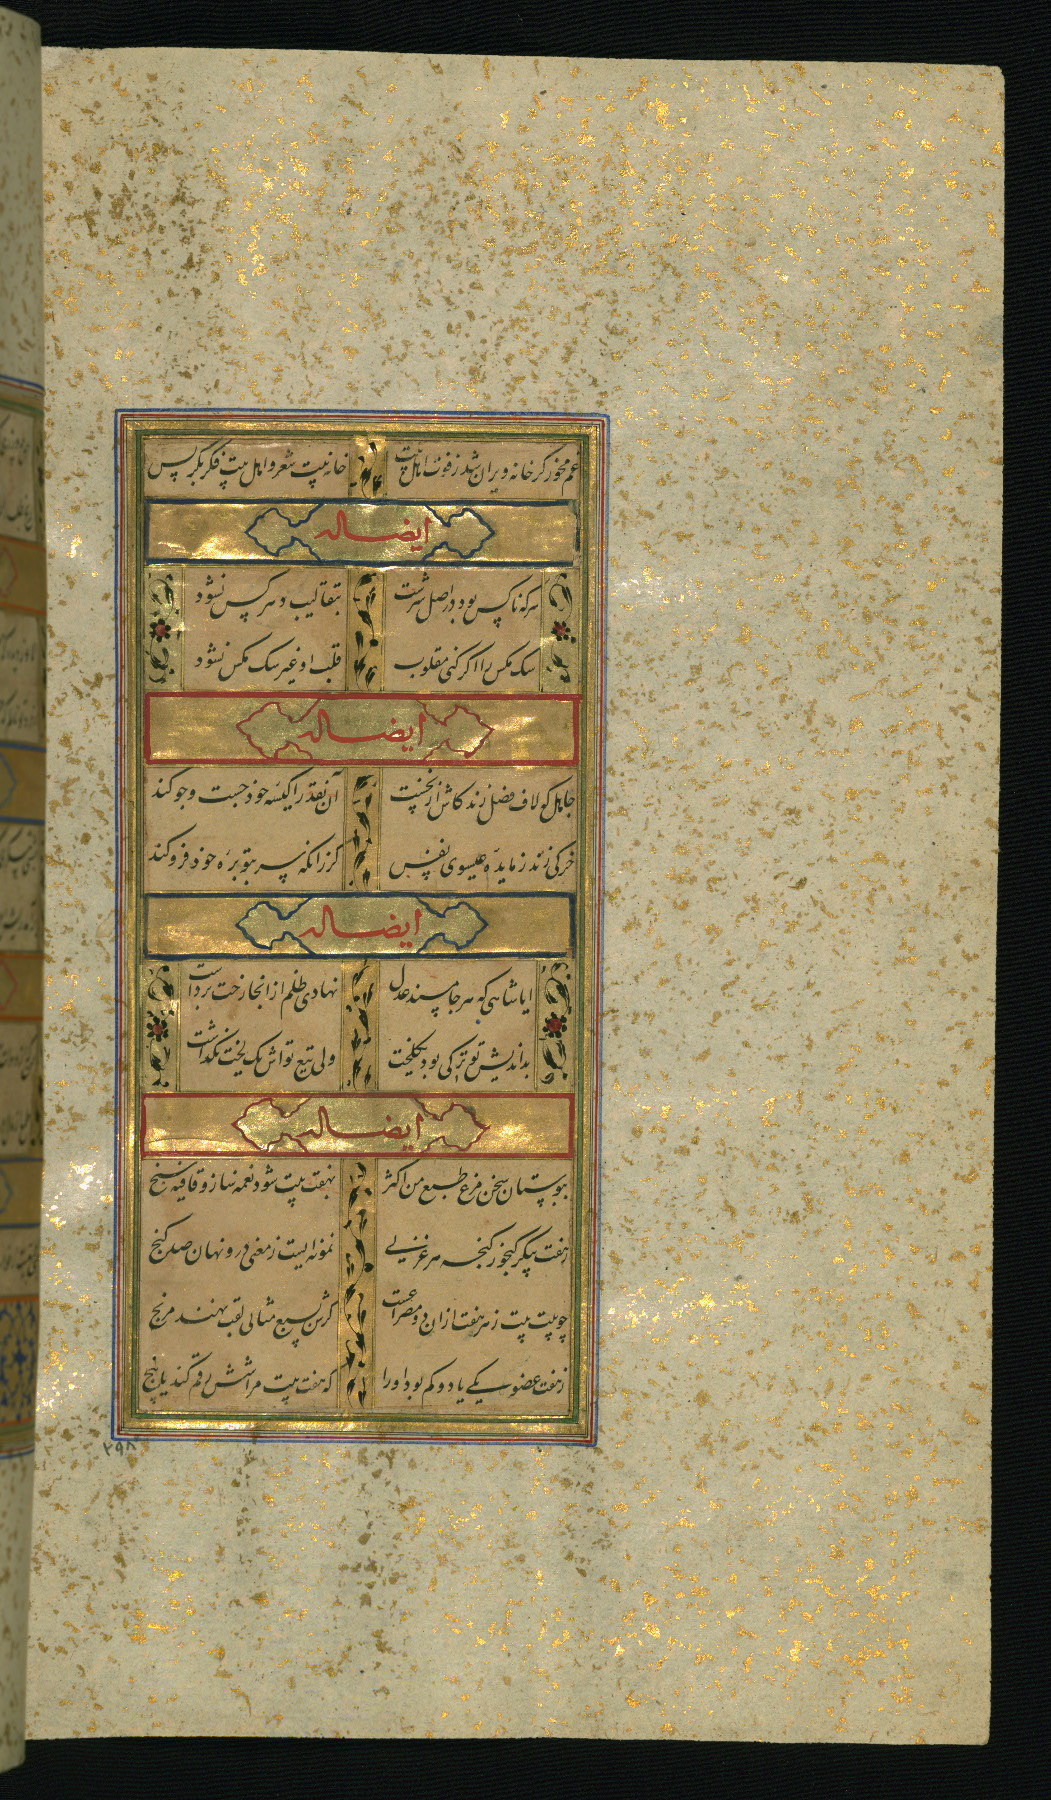 غم مخور گر خانه ویران شد ز فوت اهل بیت خانه بیت شعر و اهل بیت فکر بکر بس
ایضا له
هر که ناکس بود در اصل سرشت بتقالیب دهر کس نشود
سک مکس را اگر کنی مقلوب قلب او غیر سک مکس نشود
ایضا له
جاهل که لاف فضل زند کاش از نخست آن نقد را بکیسه خود جست و جو کند
خر کی زند ز مایده عیسوی نفس گر زانکه سر بتوبره خود فرو کند
ایضا له
ایا شاهی که هر جا مسند عدل نهادی ظلم از انجا رخت برداشت
بداندیش تو ترکی بود یکلخت ولی تیغ تواش یک لخت نگذاشت
ایضا له
ببوستان سخن مرغ طبع من اکثر بهفت بیت شود نغمه ساز و قافیه سنج
هفت پیکر گنجور گنجه هر غزلی نمونه ایست ز معنی درو نهان صد گنج
چو بیت بیت ز هر هفت ازان دو مصراعست گرش بسبع مثانی لقب نهند مرنج
ز هفت عضو یکی یا دو کم بود او را که هفت بیت مرا شش رقم کند یا پنج
۲۹۸